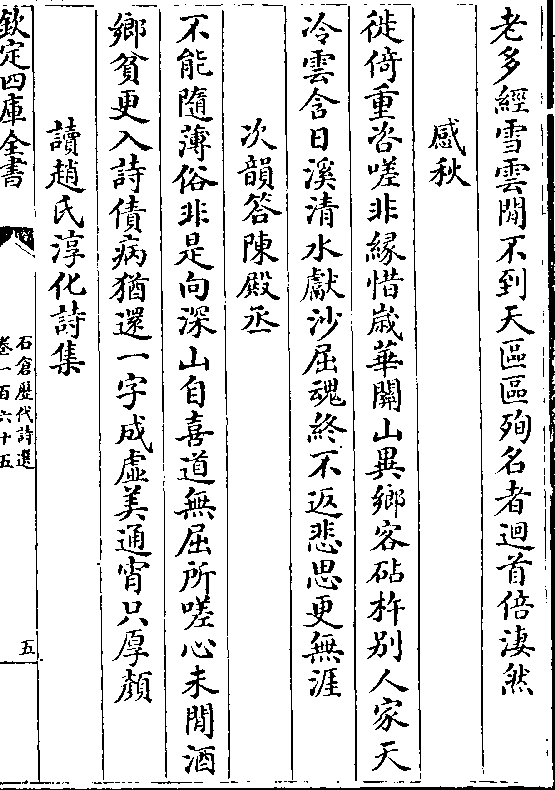 老多經雪雲閒不到天區區殉名者迴首倍淒然
感秋
徙倚重咨嗟非緣惜歲華關山異鄉客砧杵别人家天
冷雲含日溪清水獻沙屈魂終不返悲思更無涯
次韻答陳殿丞
不能隨薄俗非是向深山自喜道無屈所嗟心未閒酒
鄉貧更入詩債病猶還一字成虛美通宵只厚顏
讀趙氏淳化詩集
欽定四庫全書
石倉歷代詩選
卷一百六十五
五